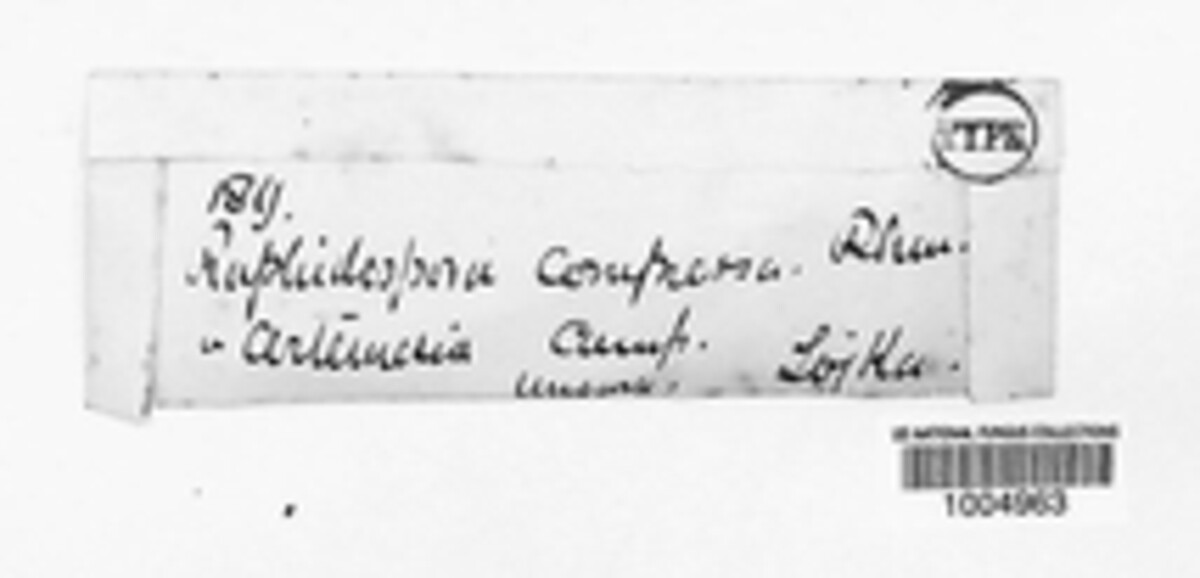 TYPE
Raphidospora compressa. Rehm.
Artemisia camp. Lojka.
US NATIONAL FUNGUS COLLECTIONS
1004963